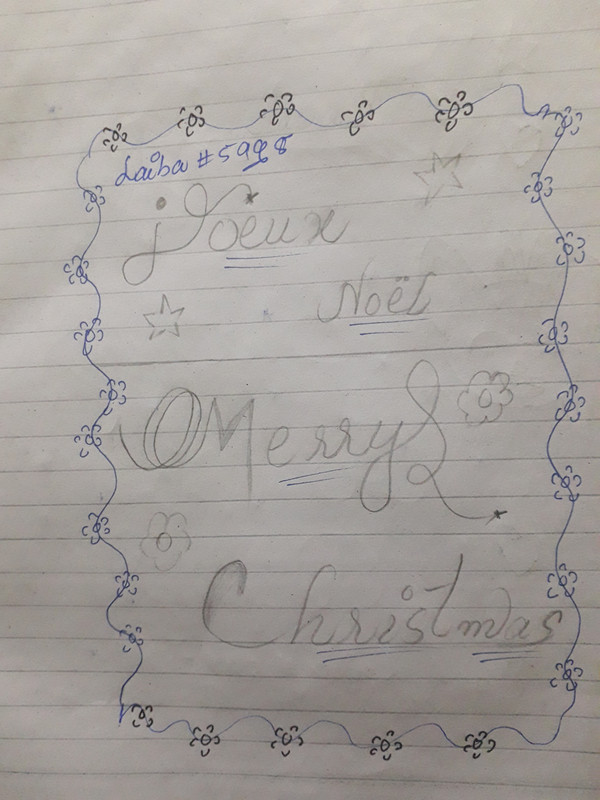 Laiba #5998
joeux
Noël
Merry
Christmas